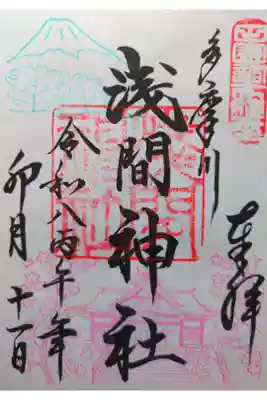 奉拝
多摩川
浅間神社
令和八丙午年
卯月十一日